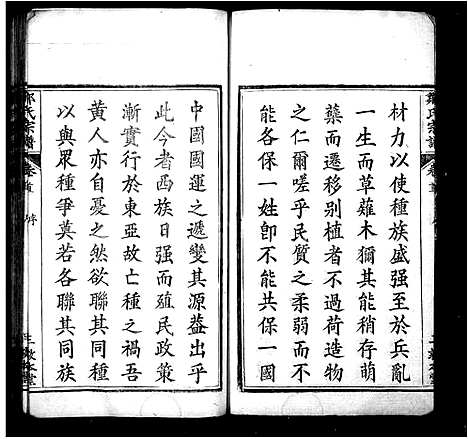 材力以使種族盛强至於兵亂
一生而草薙木獮其能稍存萌
蘖而遷移别植者不過荷造物
之仁爾嗟乎民質之柔弱而不
能各保一姓卽不能共保一國
中國國運之遞變其源蓋出乎
此今者西族日强而殖民政策
漸實行於東亞故亡種之禍吾
黄人亦自憂之然欲聯其種族
以與眾種爭莫若各聯其同族
氏宗譜
卷首
序